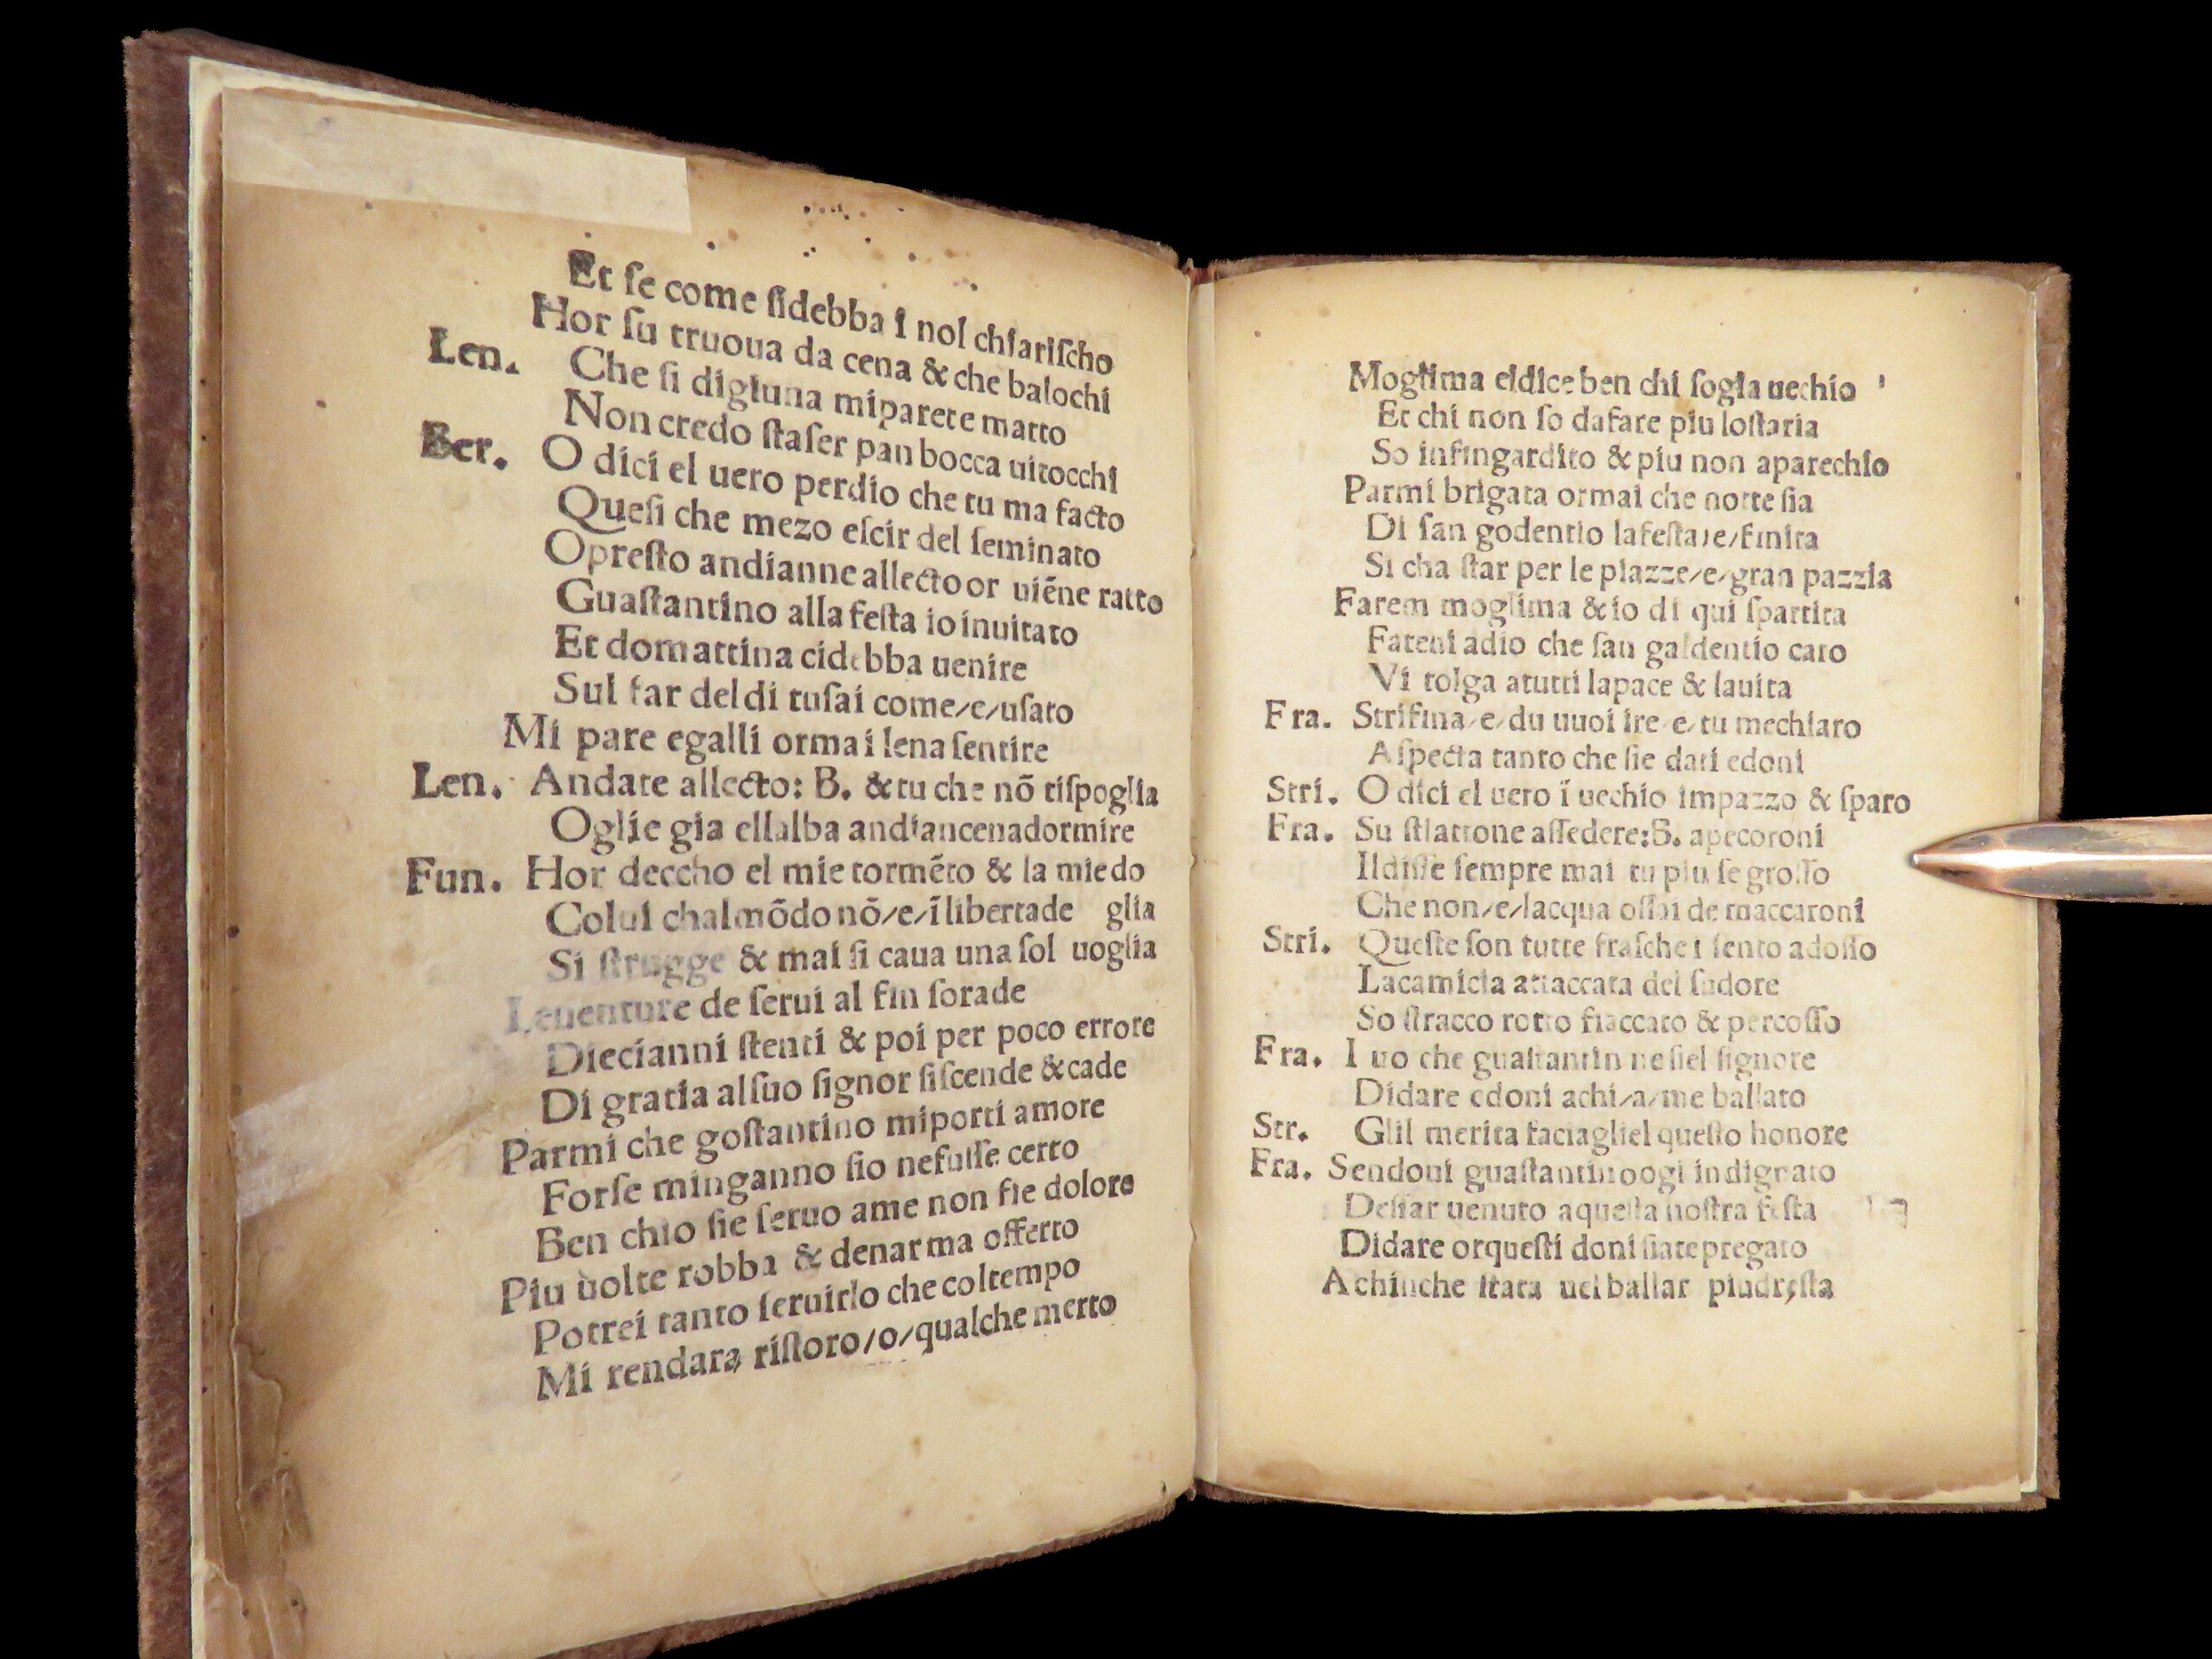 Et ſe come ſidebba i nol chiariſcho
Hor ſu truoua da cena & che balochi
Len. Che ſi digiuna miparete matto
Non credo ſtaſer pan bocca uitocchi
Ber. O dici el uero perdio che tu ma facto
Queſi che mezo eſcir del ſeminato
Opreſto andianne allecto or uiēne ratto
Guaſtantino alla feſta io inuitato
Et domattina cidebba uenire
Sul far del di tuſai come/e/uſato
Mi pare egalli ormai lena ſentire
Len. Andate allecto: B. & tu che nō tiſpoglia
Oglie gia ellalba andiancenadormire
Fun. Hor deccho el mie tormēto & la mie do
Colui chalmōdo nō/e/ī libertade glia
Si ſtrugge & mai ſi caua una ſol uoglia
Leuenture de ſerui al fin ſorade
Diecianni ſtenti & poi per poco errore
Di gratia alſuo ſignor ſiſcende & cade
Parmi che goſtantino miporti amore
Forſe minganno ſio nefuſſe certo
Ben chio ſie ſeruo ame non fie dolore
Piu uolte robba & denar ma offerto
Potrei tanto ſeruirlo che coltempo
Mi rendara riſtoro/o/qualche merto
Moglima eldice ben chi ſogia uechio
Et chi non ſo dafare piu loſtaria
So infingardito & piu non aparechio
Parmi brigata ormai che notte ſia
Di ſan godentio lafeſta/e/finita
Si cha ſtar per le piazze/e/gran pazzia
Farem moglima & io di qui ſpartita
Fateui adio che ſan galdentio caro
Vi tolga atutti lapace & lauita
Fra. Strifina/e/du uuoi ire/e/tu mechiaro
Aſpecta tanto che ſie dati edoni
Stri. O dici el uero ī uechio impazzo & ſparo
Fra. Su ſtiattone aſſedere: B. apecoroni
Ildiſſe ſempre mai tu piu ſe groſſo
Che non/e/lacqua oſſai de maccaroni
Stri. Queſte ſon tutte fraſche i ſento adoſſo
Lacamicia attaccata del ſudore
So ſtracco rotto fiaccato & percoſſo
Fra. I uo che guaſtantin ne ſiel ſignore
Didare edoni achi/a/me ballato
Str. Glil merita faciagliel queſto honore
Fra. Sendoui guaſtantino ogi indignato
Deſſar uenuto aqueſta noſtra feſta
Didare orqueſti doni ſiate pregato
A chinche ſtata uel ballar piudreſta